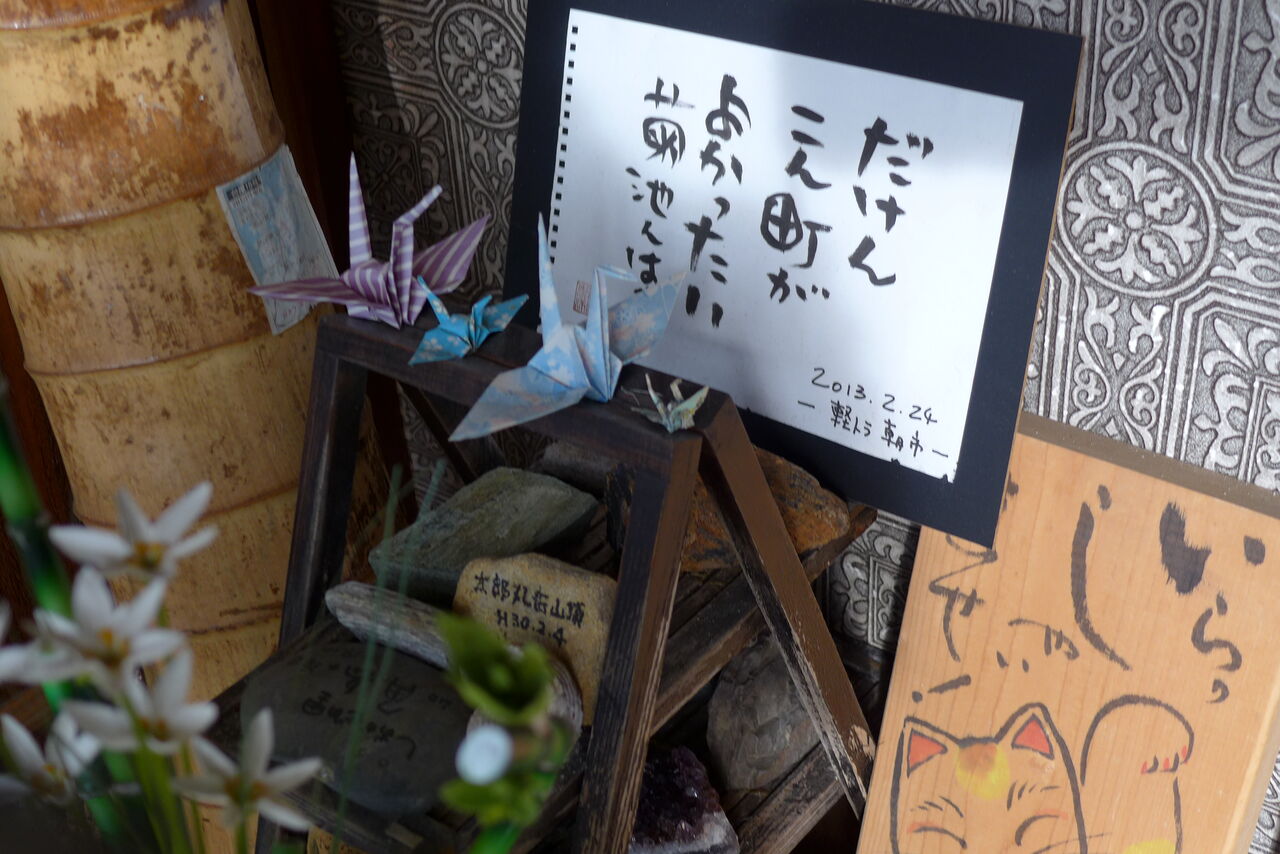 だけん
こん町が
よかったい
菊池んは
2013.2.24
― 軽トラ 朝市 ―
太郎丸岳山頂
H30.2.4
いらっ
しゃい
ませ!